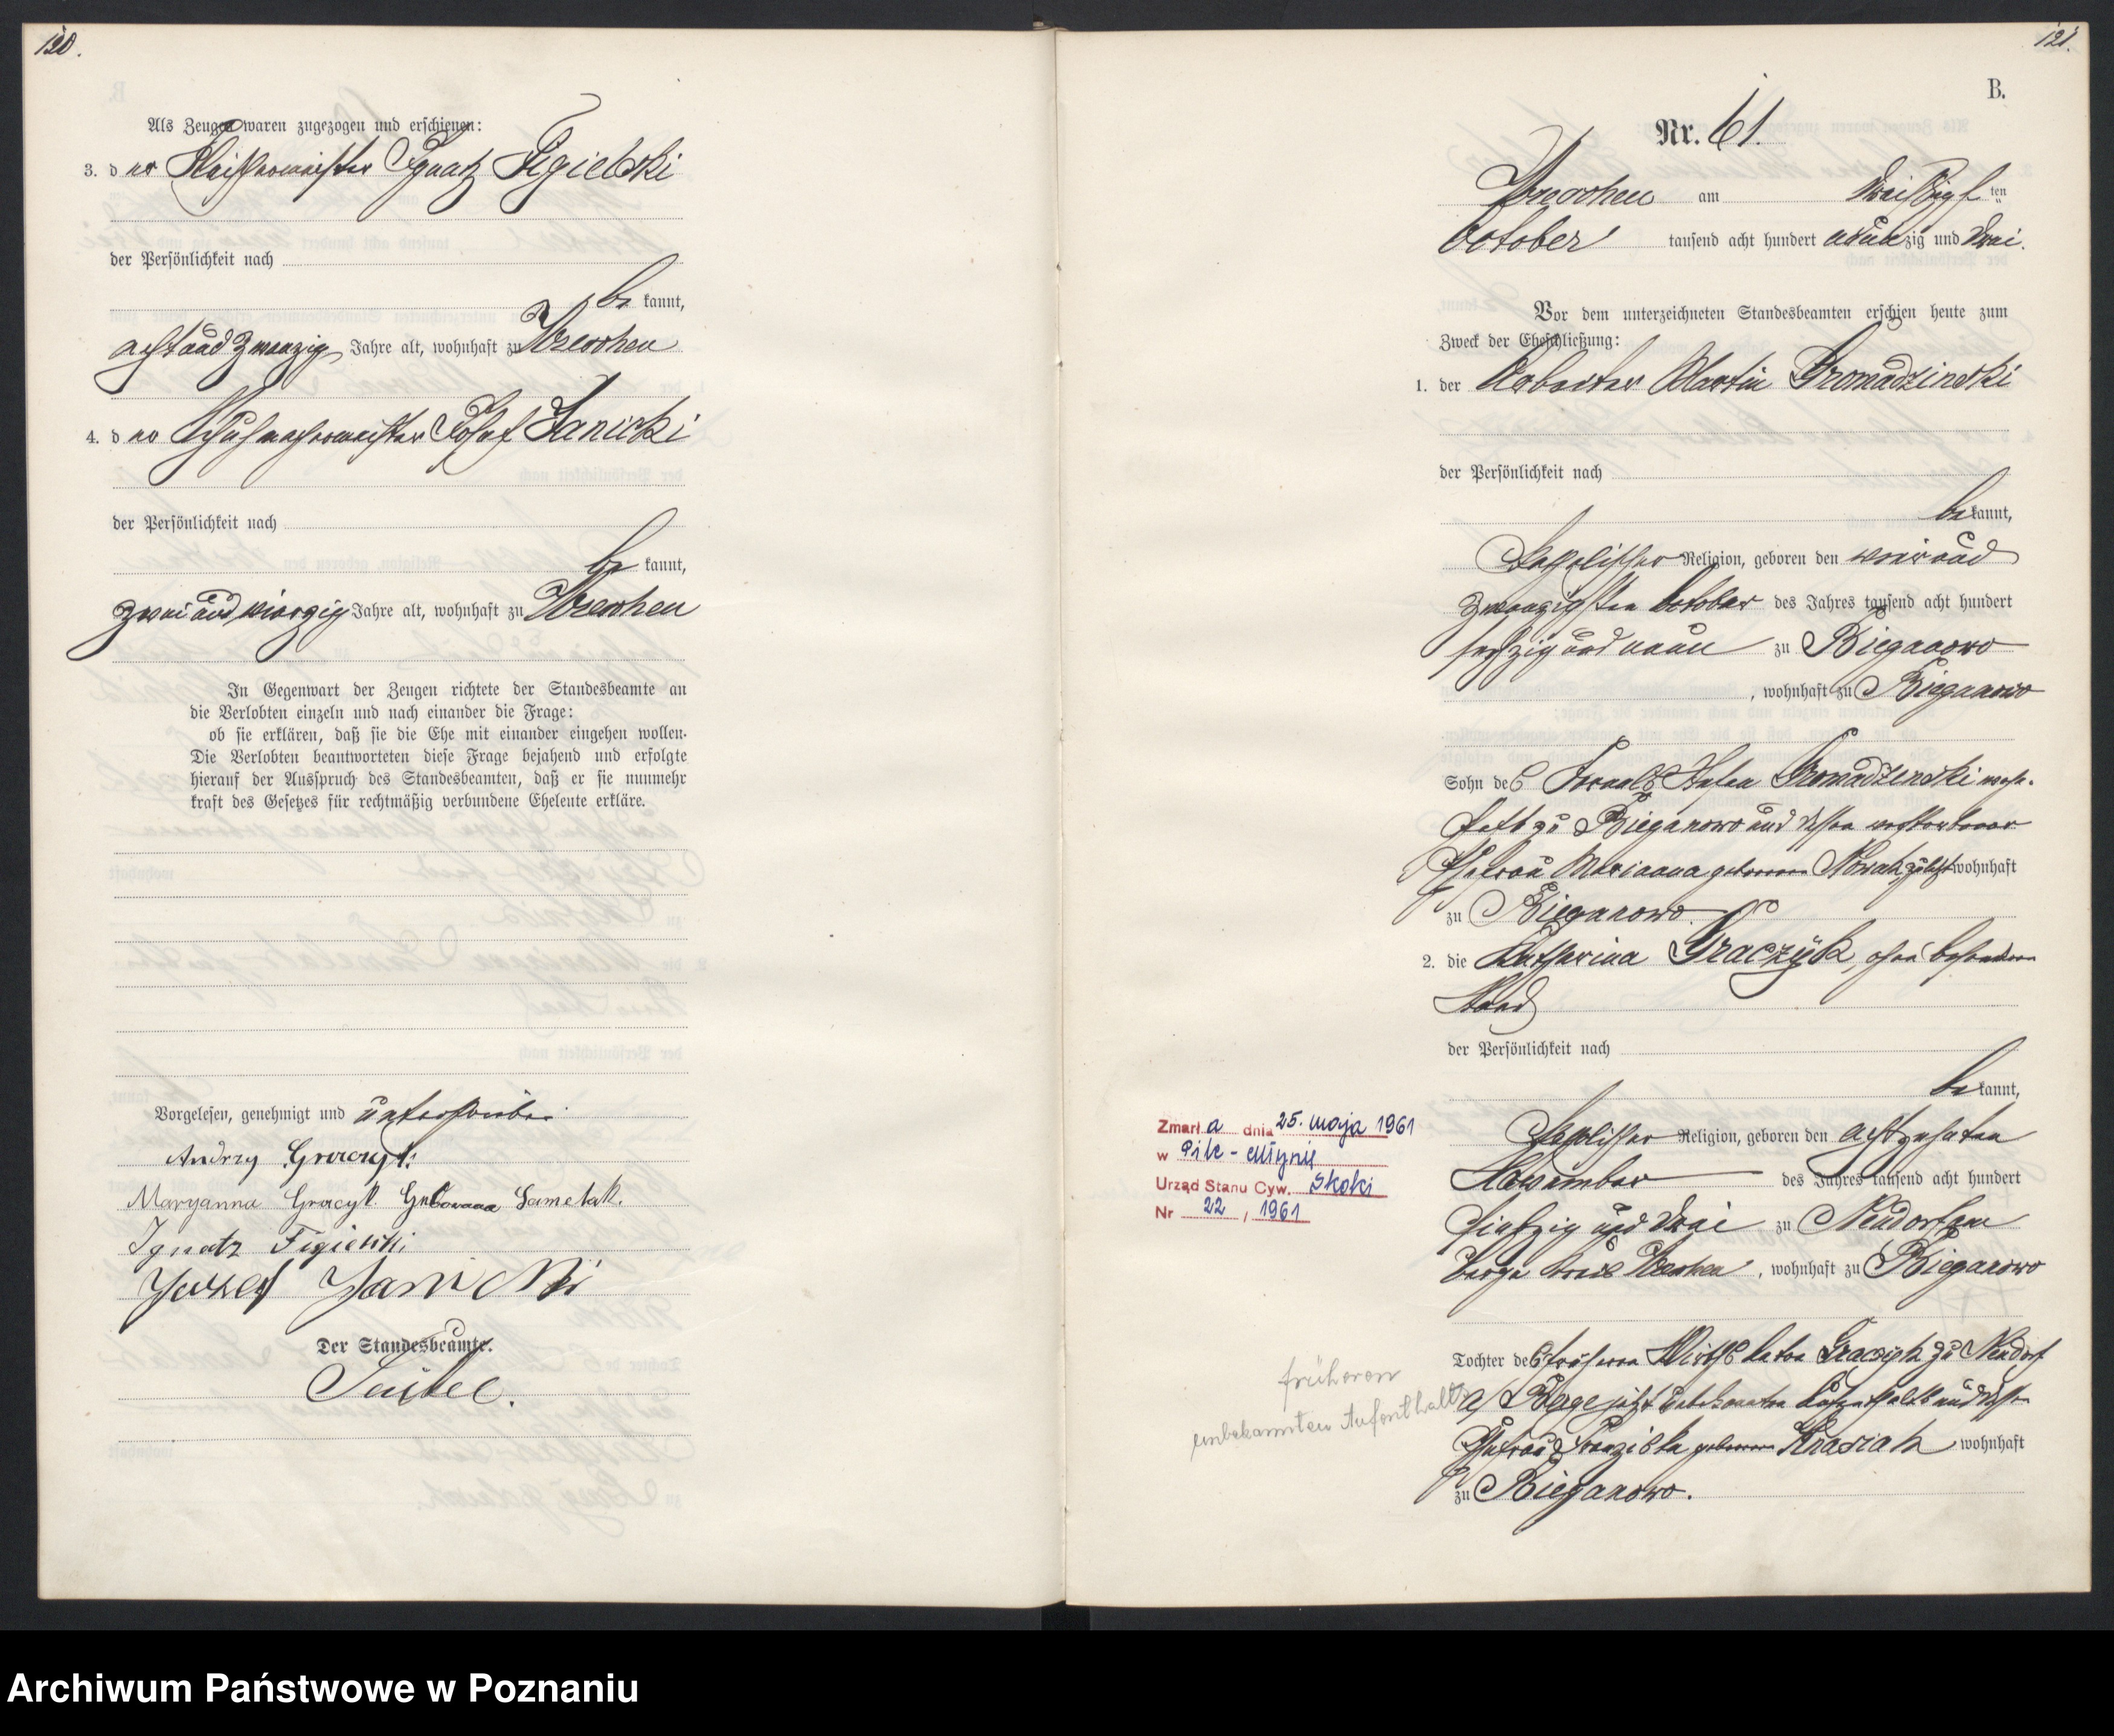 120.
Als Zeugen waren zugezogen und erschienen:
3. der Fleischermeister Ignatz Figielski
der Persönlichkeit nach
be kannt,
achtundzwanzig Jahre alt, wohnhaft zu Wreschen
4. der Schuhmachermeister Josef Janicki
der Persönlichkeit nach
be kannt,
zweiundvierzig Jahre alt, wohnhaft zu Wreschen
In Gegenwart der Zeugen richtete der Standesbeamte an
die Verlobten einzeln und nach einander die Frage:
ob sie erklären, daß sie die Ehe mit einander eingehen wollen.
Die Verlobten beantworteten diese Frage bejahend und erfolgte
hierauf der Ausspruch des Standesbeamten, daß er sie nunmehr
kraft des Gesetzes für rechtmäßig verbundene Eheleute erkläre.
Vorgelesen, genehmigt und unterschrieben
Andrzy Graczyk
Maryanna Gracyk Geborana Sametak.
Ignatz Figielski
Jozef Janicki
Der Standesbeamte.
121.
B.
Nr. 61.
Wreschen am dreißigsten
October tausend acht hundert neunzig und drei.
Vor dem unterzeichneten Standesbeamten erschien heute zum
Zweck der Eheschließung:
1. der Arbeiter Martin Gromadzinski
der Persönlichkeit nach
be kannt,
katholischer Religion, geboren den vierund
zwanzigsten October des Jahres tausend acht hundert
sechzig und neun zu Bieganowo
, wohnhaft zu Bieganowo
Sohn des Fornals Stefan Gromadzinski wohn-
haft zu Bieganowo und dessen verstorbener
Ehefrau Marianna geborenen Nowak zuletzt wohnhaft
zu Bieganowo
2. die Katharina Graczyk, ohne besonderen
Stand
der Persönlichkeit nach
be kannt,
katholischer Religion, geboren den achtzehnten
November des Jahres tausend acht hundert
siebzig und drei zu Neudorf am
Berge Kreis Wreschen, wohnhaft zu Bieganowo
Tochter des früheren Wirths Graczyk zu Neudorf
a/Berge jetzt unbekannten Aufenthalts und dessen
Ehefrau Franziska geborenen Krasiak wohnhaft
zu Bieganowo.
Zmarła dnia 25. maja 1961
w Pile-Młynie
Urząd Stanu Cyw. Skoki
Nr 22, 1961
früheren
unbekannten Aufenthalts
Archiwum Państwowe w Poznaniu